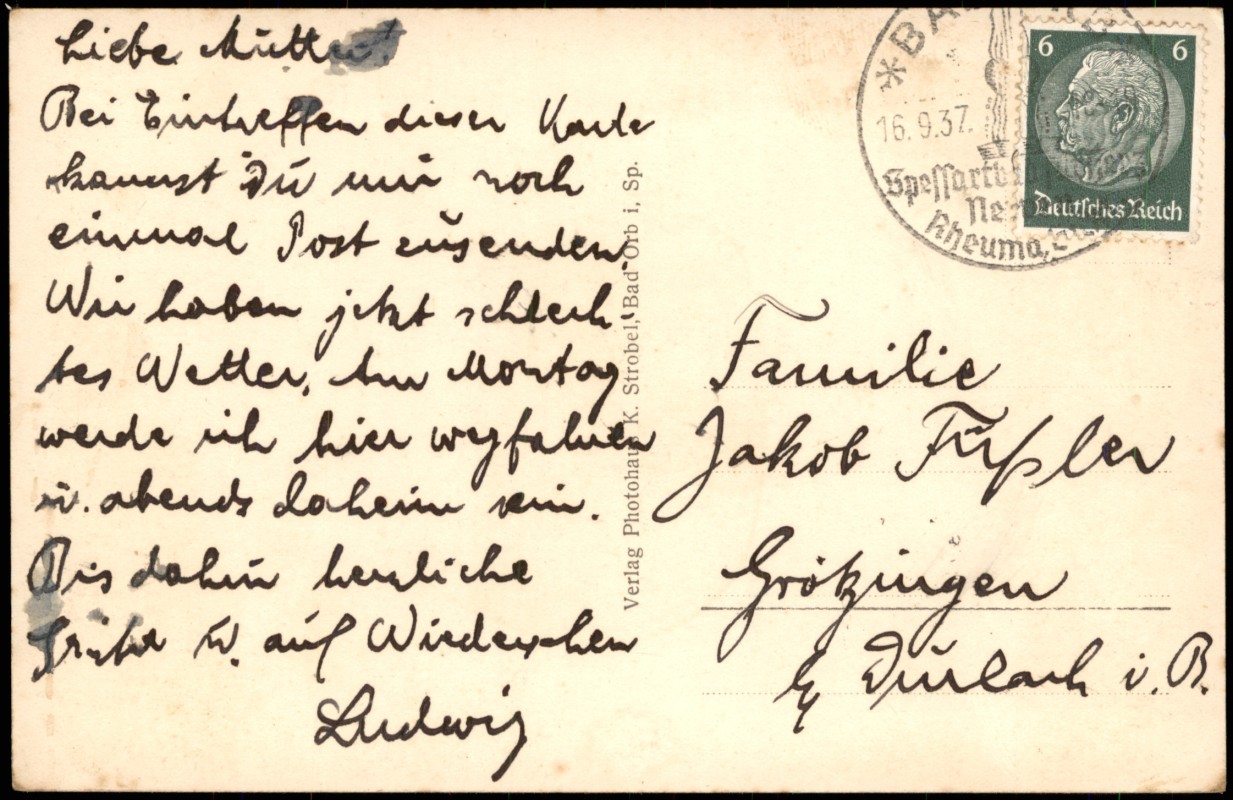 Liebe Mutter!
Bei Eintreffen dieser Karte
kannst Du mir noch
einmal Post zusenden.
Wir haben jetzt schlech-
tes Wetter. Am Montag
werde ich hier wegfahren
u. abends daheim sein.
Bis dahin herzliche
Grüße u. auf Wiedersehen
Ludwig
Verlag Photohaus K. Strobel, Bad Orb i. Sp.
16.9.37.
Rheuma,
6 6
Deutsches Reich
Familie
Jakob Füßler
Grötzingen
b/ Durlach i. B.